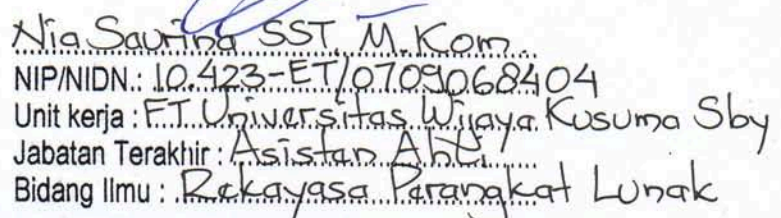 Nia Saurina SST, M.Kom.
NIP/NIDN.: 10.423-ET/0709068404
Unit kerja : FT. Universitas Wijaya Kusuma Sby
Jabatan Terakhir : Asistan Ahli
Bidang Ilmu : Rekayasa Perangkat Lunak